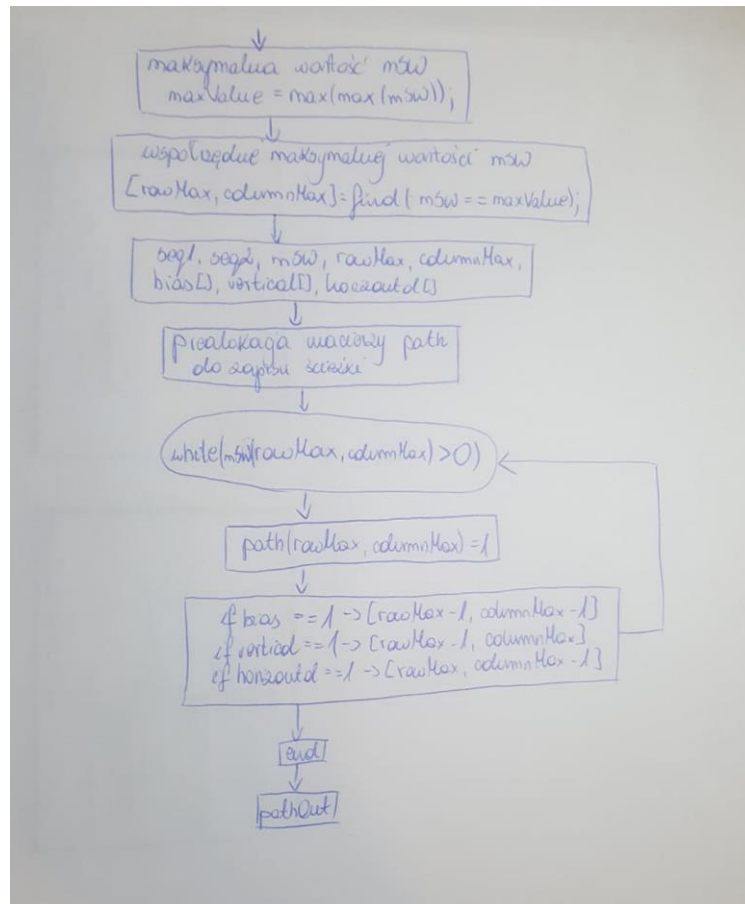 maksymalna wartość mSW
maxValue = max(max(mSW));
współrzędne maksymalnej wartości mSW
[rowMax, columnMax]=find(mSW==maxValue);
seq1, seq2, mSW, rowMax, columnMax,
bias[], vertical[], horizontal[]
prealokacja macierzy path
do zapisu ścieżki
while(mSW(rowMax, columnMax)>0)
path(rowMax, columnMax)=1
if bias ==1->[rowMax-1, columnMax-1]
if vertical==1->[rowMax-1, columnMax]
if horizontal==1->[rowMax, columnMax-1]
end
pathOut